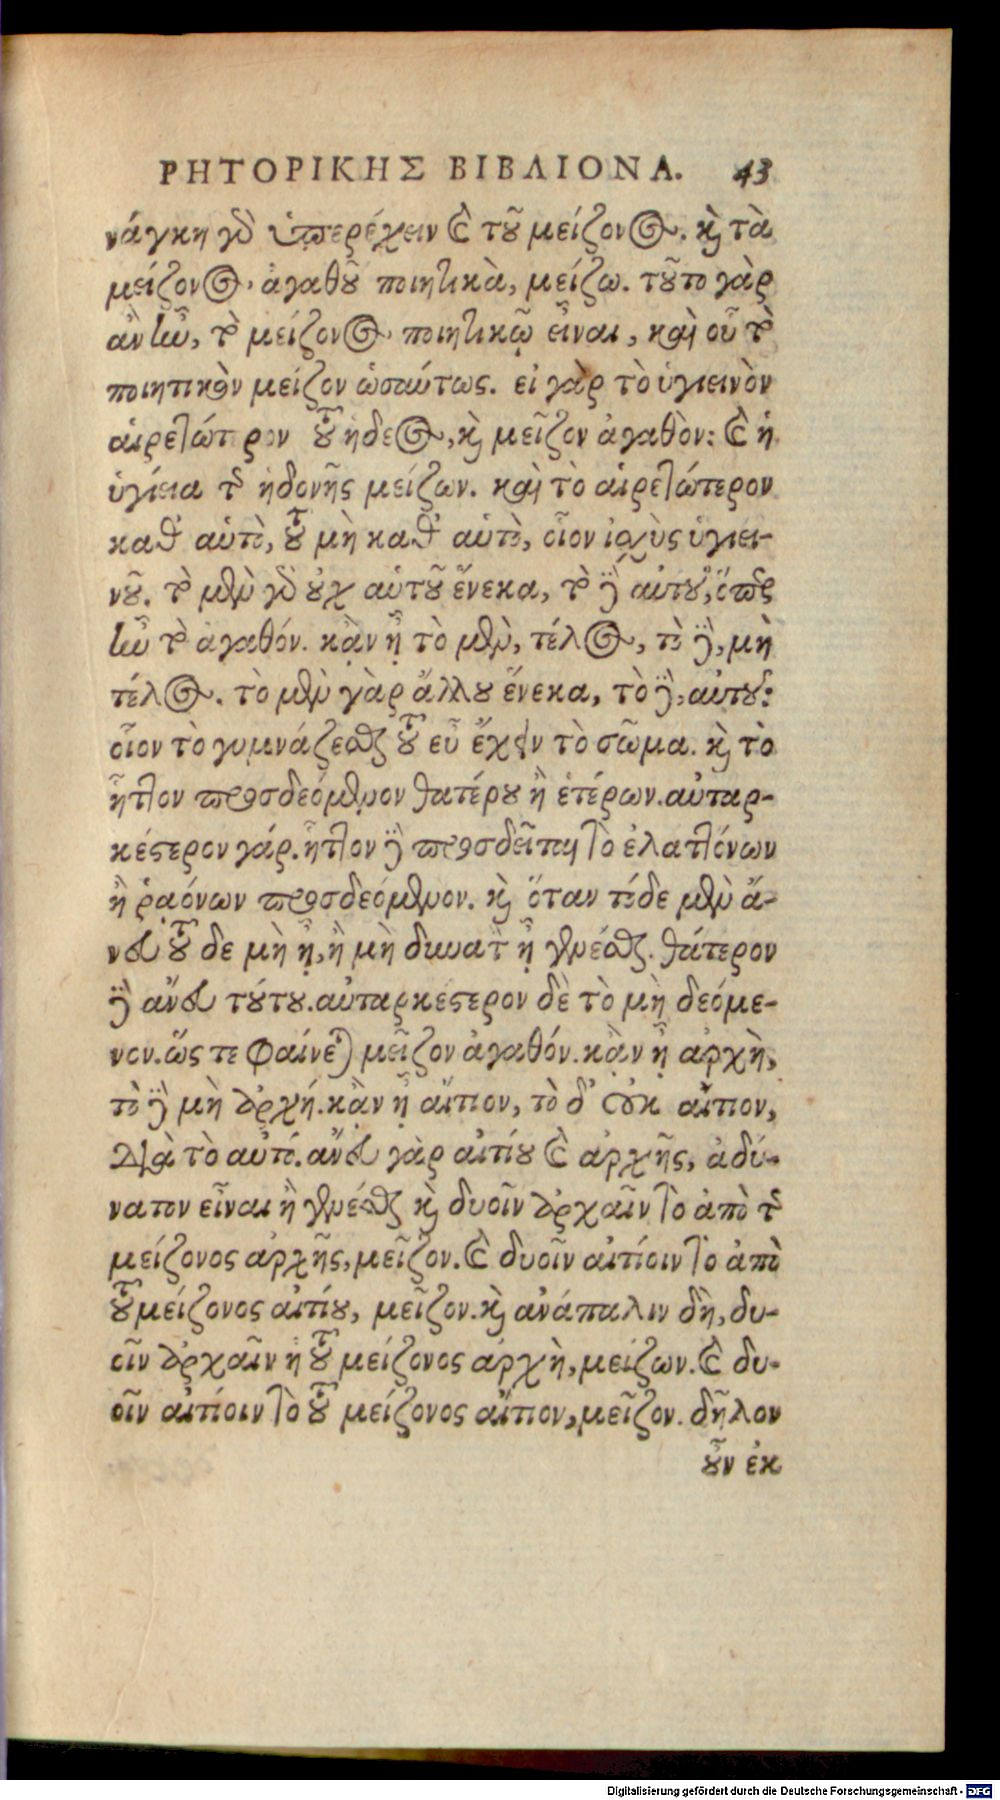 ΡΗΤΟΡΙΚΗΣ ΒΙΒΛΙΟΝ Α. 43
νάγκη γὰρ ὑπερέχειν καὶ τοῦ μείζονος. καὶ τὰ
μείζονος ἀγαθοῦ ποιητικὰ, μείζω. τοῦτο γὰρ
ἂν ἦν, τὸ μείζονος ποιητικῷ εἶναι, καὶ οὗ τὸ
ποιητικὸν μεῖζον ὡσαύτως. εἰ γὰρ τὸ ὑγιεινὸν
αἱρετώτερον τοῦ ἡδέος, καὶ μεῖζον ἀγαθὸν: καὶ ἡ
ὑγίεια τῆς ἡδονῆς μείζων. καὶ τὸ αἱρετώτερον
καθ' αὑτὸ, τοῦ μὴ καθ' αὑτὸ, οἷον ἰσχὺς ὑγιει-
νοῦ. τὸ μὲν γὰρ οὐχ αὑτοῦ ἕνεκα, τὸ δὲ αὑτοῦ, ὅπερ
ἦν τὸ ἀγαθόν. κἂν ᾖ τὸ μὲν, τέλος, τὸ δὲ, μὴ
τέλος. τὸ μὲν γὰρ ἄλλου ἕνεκα, τὸ δὲ, αὑτοῦ:
οἷον τὸ γυμνάζεσθαι τοῦ εὖ ἔχειν τὸ σῶμα. καὶ τὸ
ἧττον προσδεόμενον θατέρου ἢ ἑτέρων. αὐταρ-
κέστερον γάρ. ἧττον δὲ προσδεῖται τὸ ἐλαττόνων
ἢ ῥᾳόνων προσδεόμενον. καὶ ὅταν τόδε μὲν ἄ-
νευ τοῦ δε μὴ ᾖ, ἢ μὴ δυνατὸν ᾖ γενέσθαι. θάτερον
δὲ ἄνευ τούτου. αὐταρκέστερον δὲ τὸ μὴ δεόμε-
νον. ὥς τε φαίνεται μεῖζον ἀγαθόν. κἂν ᾖ ἀρχὴ,
τὸ δὲ μὴ ἀρχή. κἂν ᾖ αἴτιον, τὸ δ' οὐκ αἴτιον,
διὰ τὸ αὐτό. ἄνευ γὰρ αἰτίου καὶ ἀρχῆς, ἀδύ-
νατον εἶναι ἢ γενέσθαι καὶ δυοῖν ἀρχαῖν τὸ ἀπὸ τῆς
μείζονος ἀρχῆς, μεῖζον. καὶ δυοῖν αἰτίοιν τὸ ἀπὸ
τοῦ μείζονος αἰτίου, μεῖζον. καὶ ἀνάπαλιν δὴ, δυ-
οῖν ἀρχαῖν ἡ τοῦ μείζονος ἀρχὴ, μείζων. καὶ δυ-
οῖν αἰτίοιν τὸ τοῦ μείζονος αἴτιον, μεῖζον. δῆλον
οὖν ἐκ
Digitalisierung gefördert durch die Deutsche Forschungsgemeinschaft - DFG